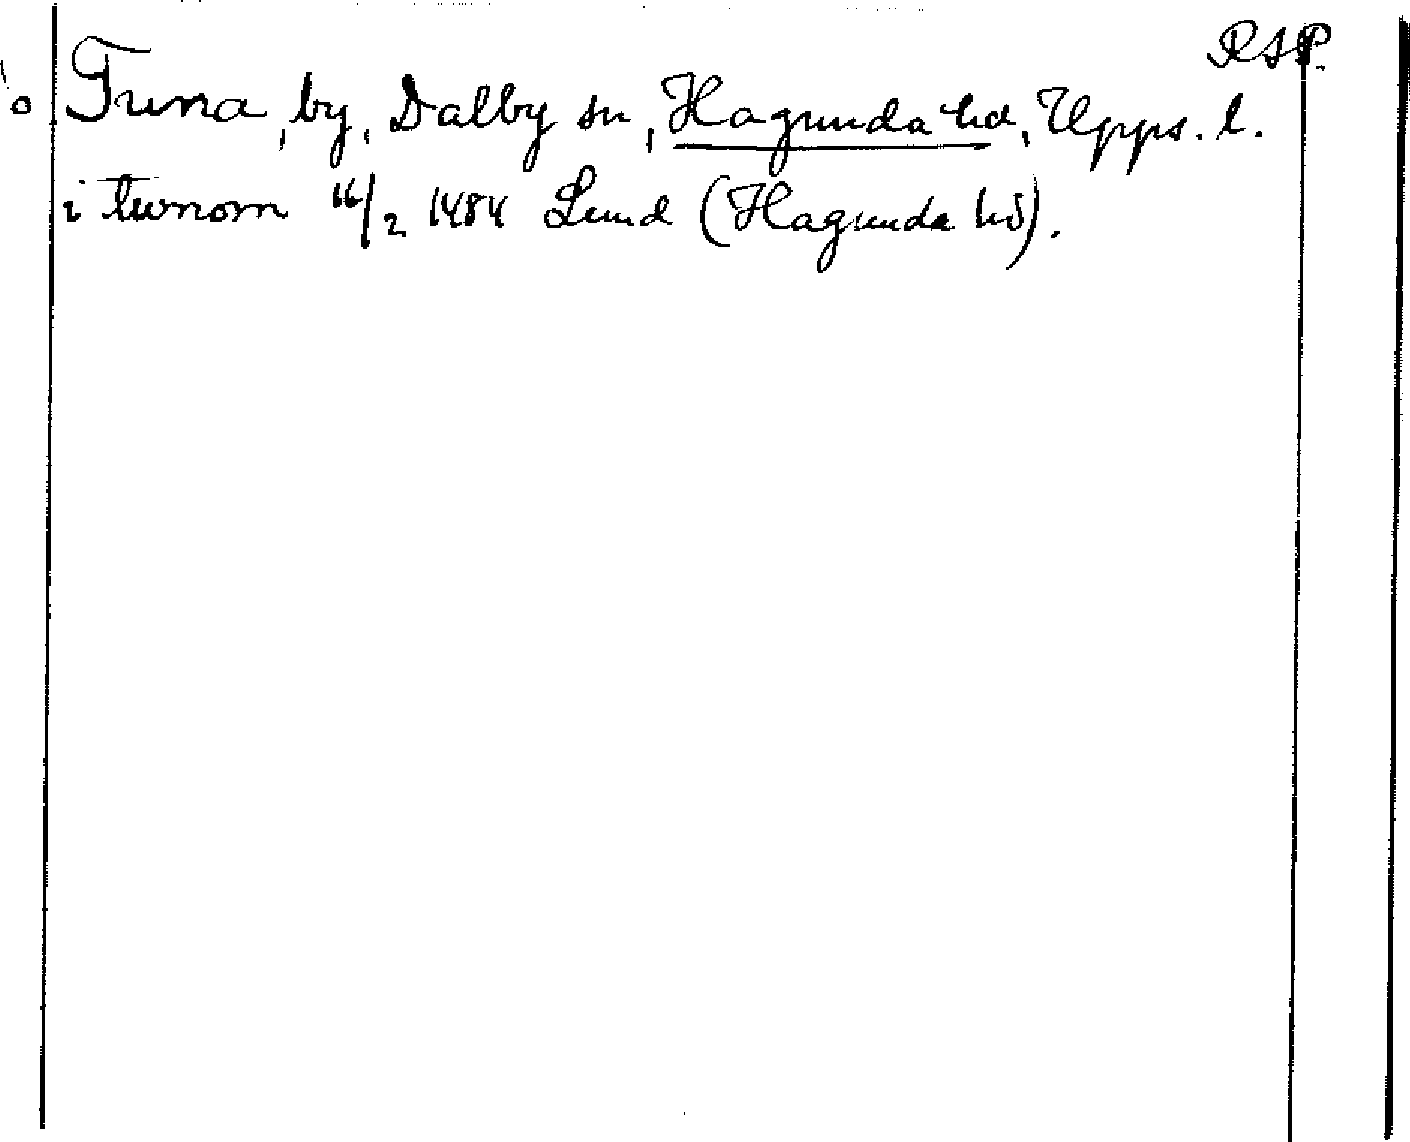 RAP.
Tuna, by, Dalby sn, Hagunda hd, Upps. l.
i twnom 16/2 1484 Lund (Hagunda hd).